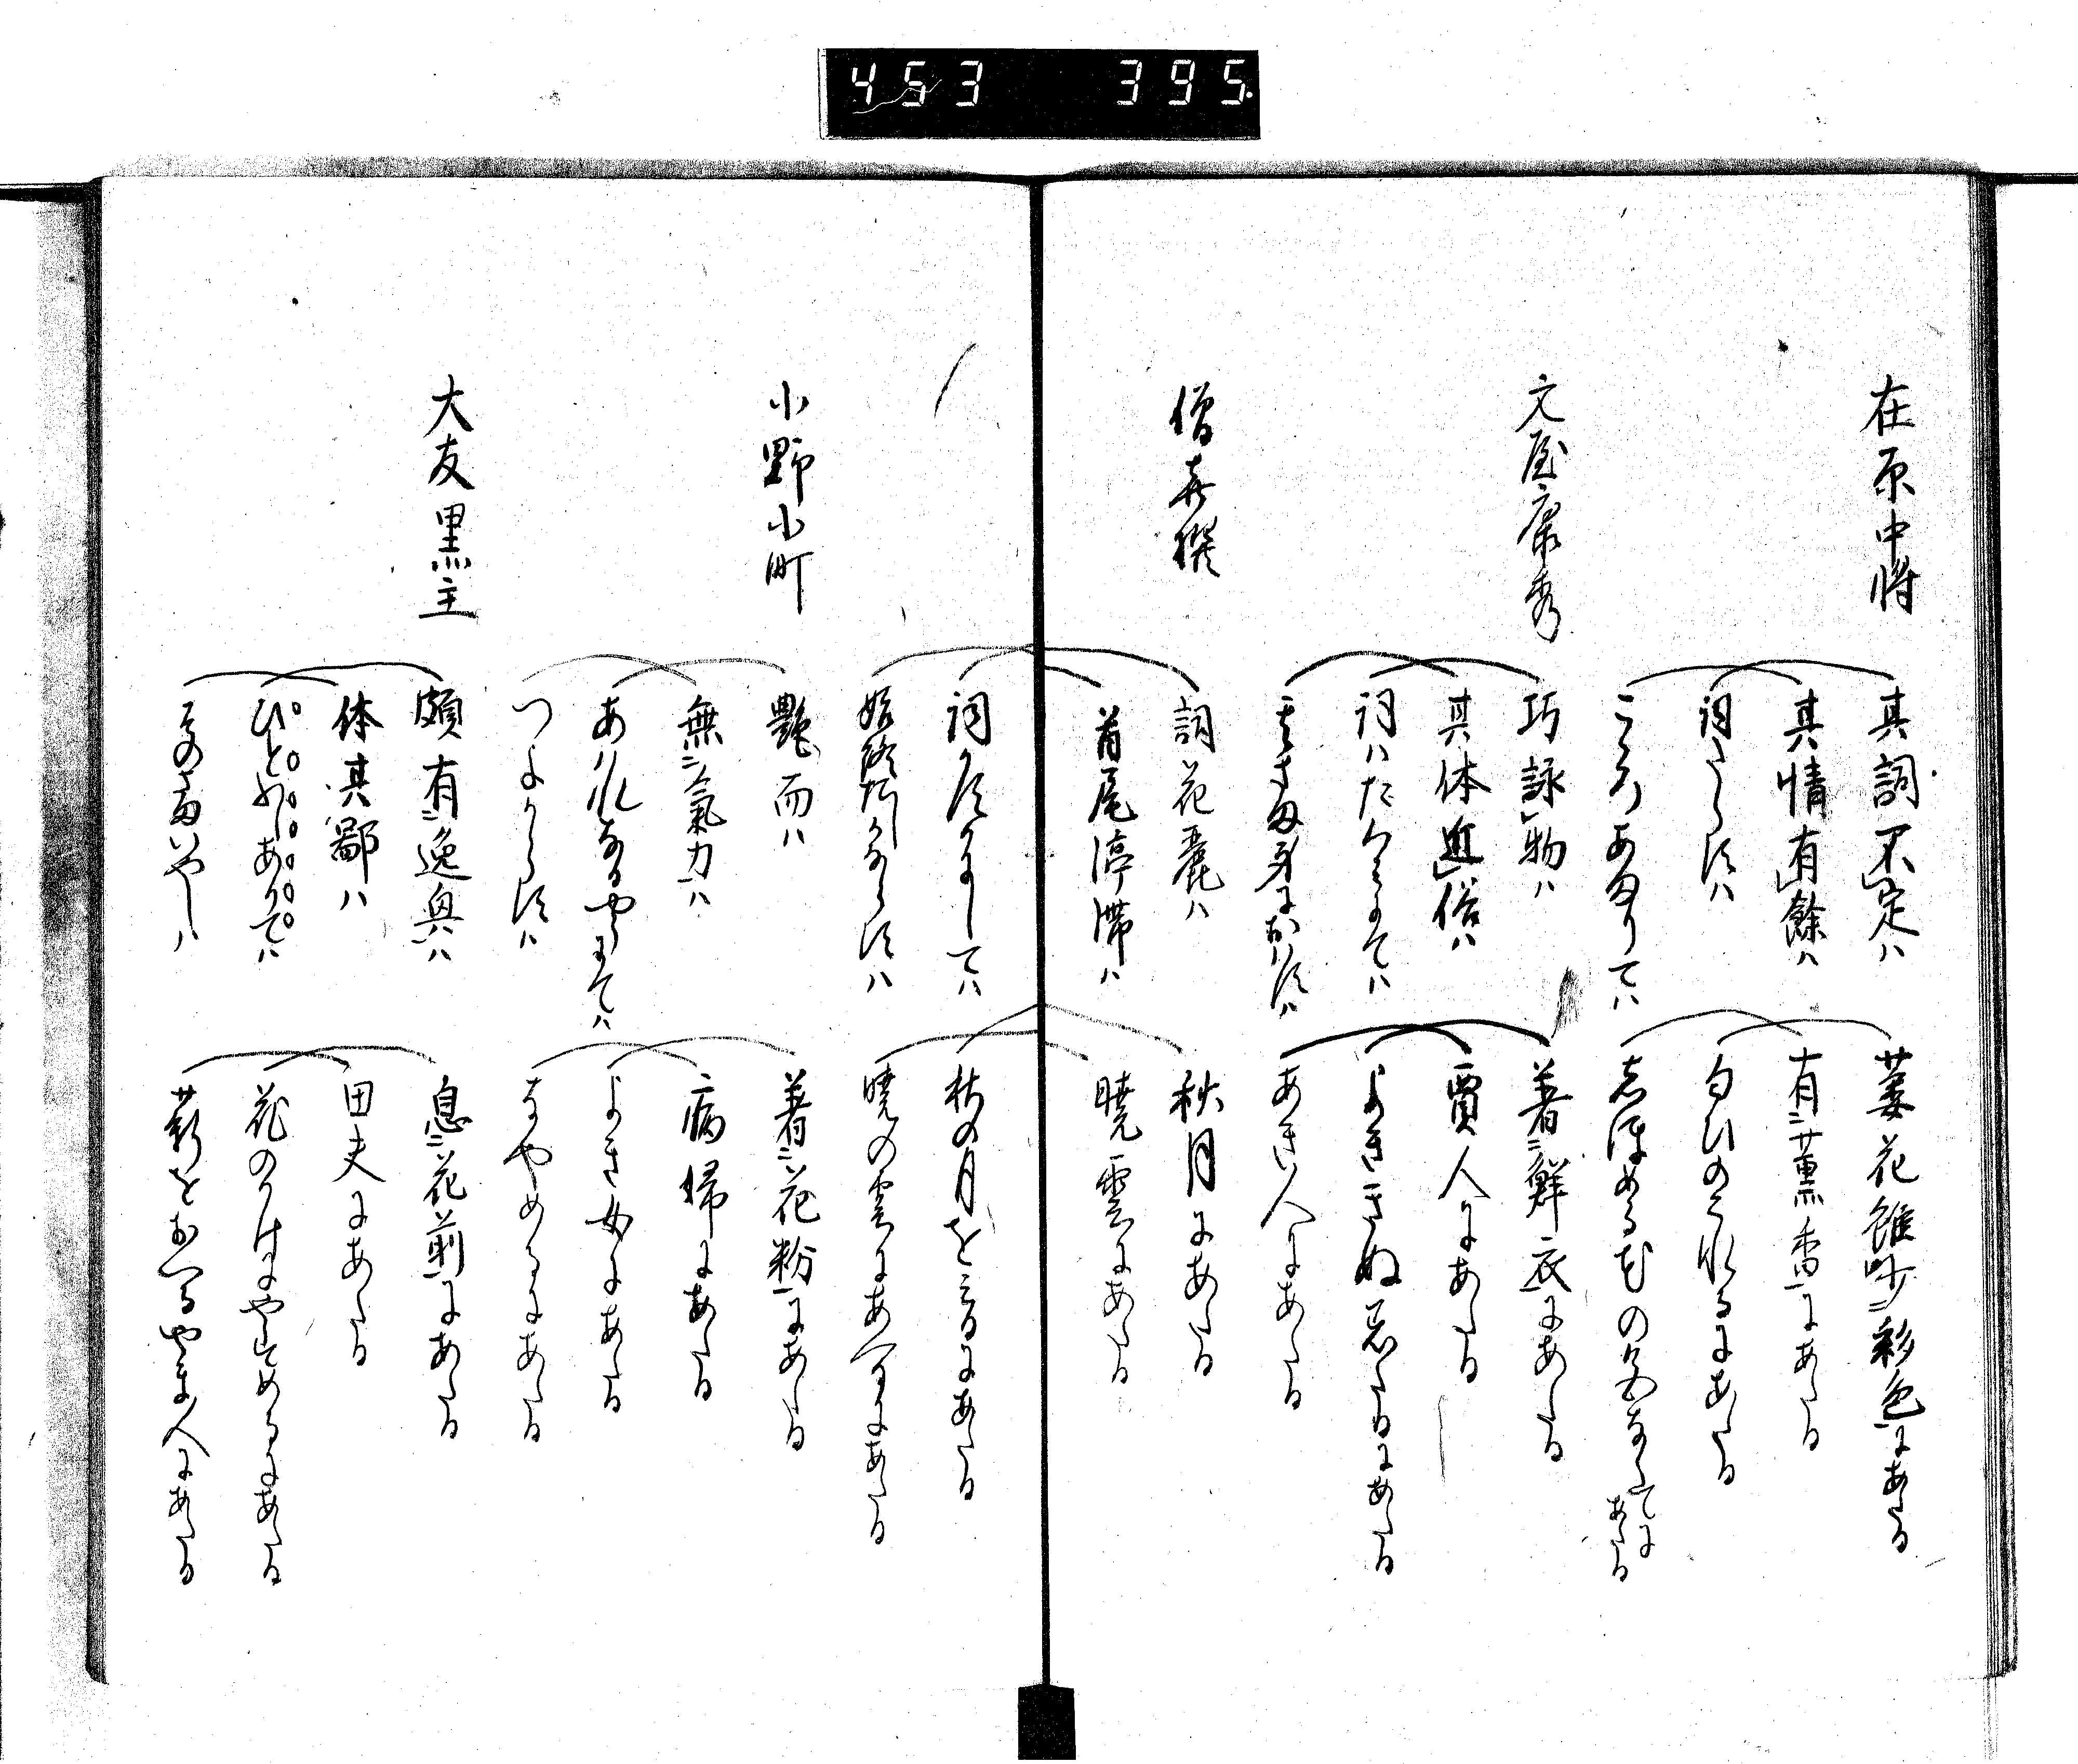 453 395.
在原中将
其詞不定ハ
萎花雖少彩色にあたる
其情有餘ハ
有薫香にあたる
詞たらすハ
匂ひのこれるにあたる
こころあまりてハ
しほめる花の色なくてに
あたる
文屋康秀
巧詠物ハ
着鮮衣にあたる
其体近俗ハ
賈人にあたる
詞ハたくみにてハ
よききぬ
あたる
そのさま身におハすハ
あき人にあたる
僧喜撰
詞花麗ハ
秋月にあたる
首尾停滞ハ
暁雲にあたる
詞かすかにしてハ
秋の月をみるにあたる
始終たしかならすハ
暁の雲にあへるにあたる
小野小町
艶而ハ
着花粉にあたる
無氣力ハ
病婦にあたる
あハれなるやうにてハ
よき女にあたる
つよからすハ
なやめるにあたる
大友黒主
頗有逸興ハ
息花前にあたる
体其鄙ハ
田夫にあたる
ひとふしありてハ
花のかけにやすめるにあたる
そのさまいやしハ
薪をおへるやま人にあたる